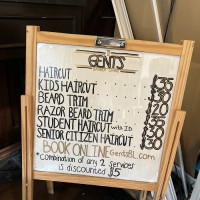 THE
GENTS
HAIRCUT $35
KIDS HAIRCUT
BEARD TRIM
RAZOR BEARD TRIM
STUDENT HAIRCUT with ID $30
SENIOR CITIZEN HAIRCUT $30
BOOK ONLINE GentsBL.com
*Combination of any 2 services
is discounted $5